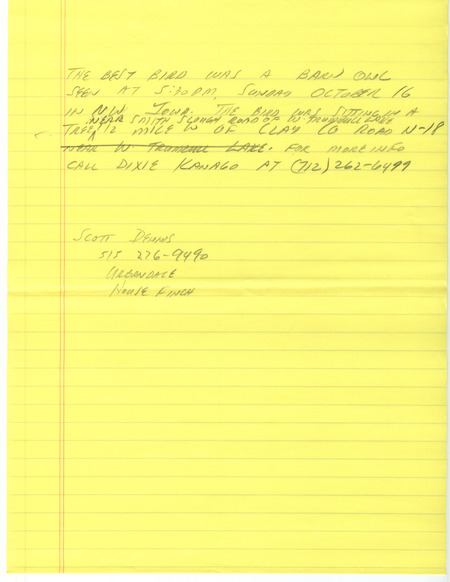 THE BEST BIRD WAS A BARN OWL
SEEN AT 5:30 PM, SUNDAY OCTOBER 16
IN N.W. IOWA. THE BIRD WAS SITTING IN A
NEAR SMITH SLOUGH ROAD OF W. TRUMBULL LAKE
TREE 1/2 MILE W OF CLAY CO ROAD N-18
NEAR W. TRUMBULL LAKE. FOR MORE INFO
CALL DIXIE KANAGO AT (712) 262-6499
SCOTT
515 276-9490
URBANDALE
HOUSE FINCH